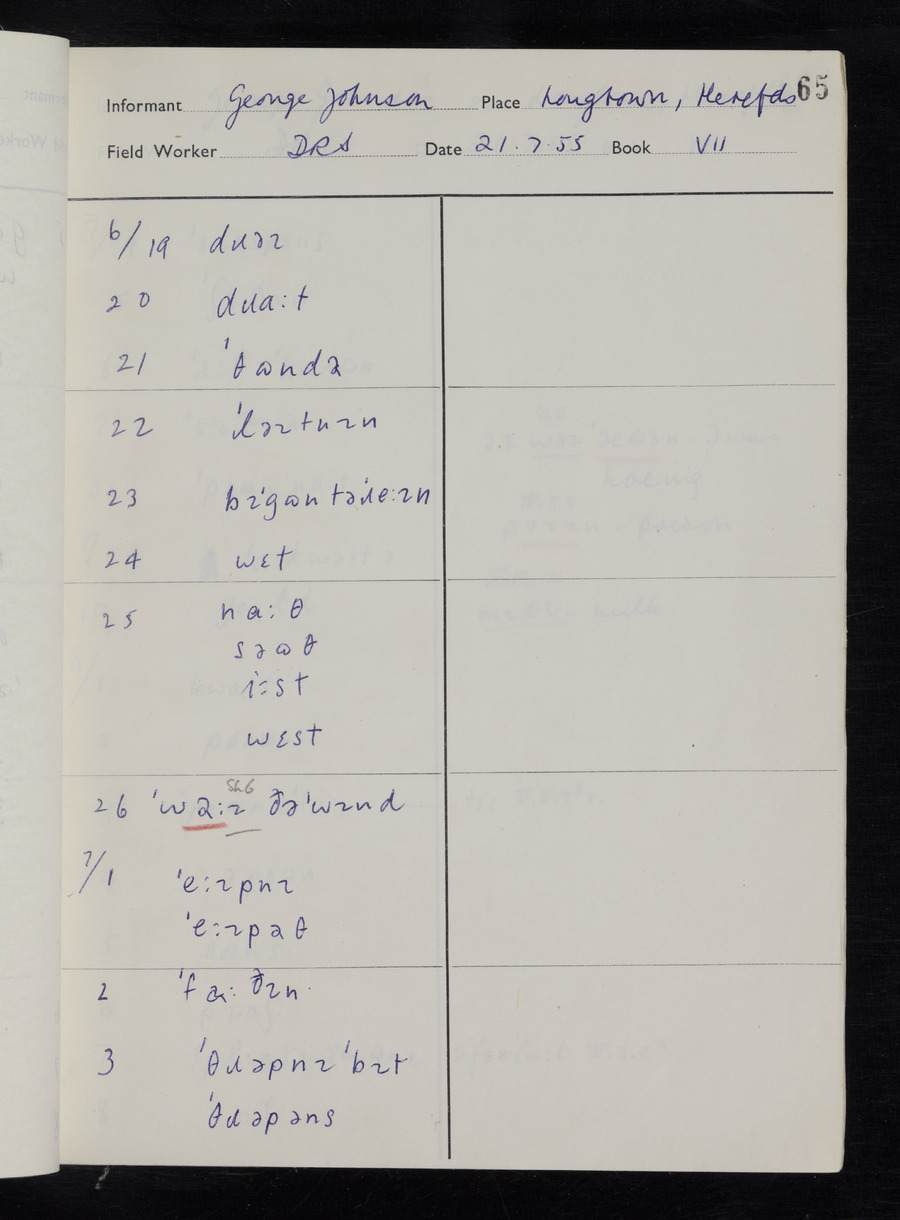 65
Informant George Johnson Place Longtown, Herefds
Field Worker DRS Date 21.7.55 Book VII
6/19 dɹəɪ
20 dɹa:t
21 ˈθɷndə
22 ˈləɪtnɪn
23 bɪˈgɷn təˈɹe:ɪn
24 wɛt
25 na:θ
səɷθ
i:st
wɛst
26 ˈwə:ɪ ðəˈwɪnd
Sh6
7/1 ˈe:ɪpnɪ
ˈe:ɪpəθ
2 ˈfa:ðɪn
3 ˈθɹəpnɪˈbɪt
ˈθɹəpəns